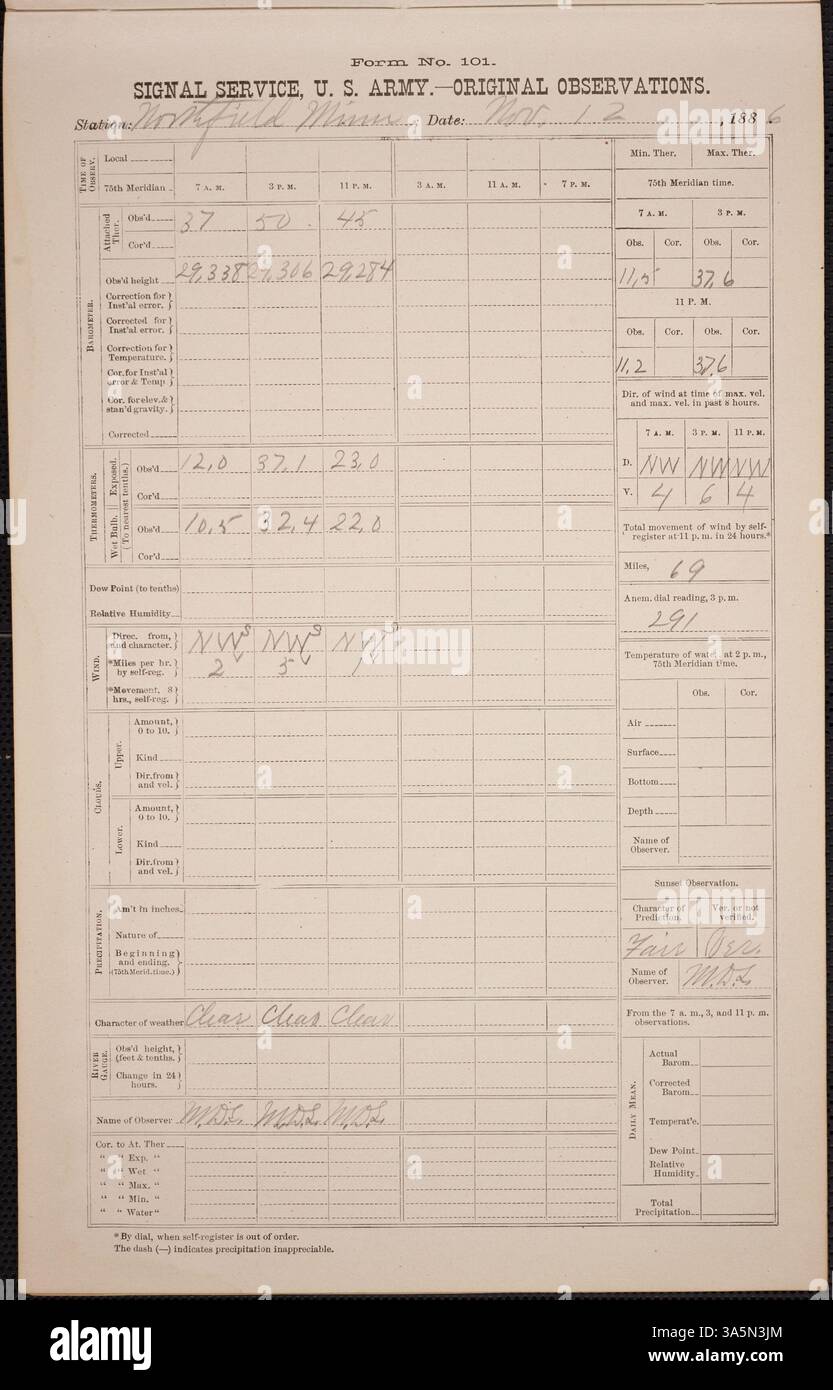 Form No. 101.
SIGNAL SERVICE, U. S. ARMY.—ORIGINAL OBSERVATIONS.
Station: Northfield Minn Date: Nov. 12, 1886.
TIME OF OBSERV.
Local
75th Meridian 7 A. M. 3 P. M. 11 P. M. 3 A. M. 11 A. M. 7 P. M.
BAROMETER.
Attached Ther.
Obs'd 37 50 45
Cor'd
Obs'd height 29,338 29,306 29,284
Correction for Inst'al error.
Corrected for Inst'al error.
Correction for Temperature.
Cor. for Inst'al error & Temp
Cor. for elev. & stan'd gravity.
Corrected
THERMOMETERS.
(To nearest tenths.)
Exposed.
Obs'd 12,0 37,1 23,0
Cor'd
Wet Bulb.
Obs'd 10,5 32,4 22,0
Cor'd
Dew Point (to tenths)
Relative Humidity
WIND.
Direc. from, and character. NWS NWS NWS
*Miles per hr. by self-reg. 2 5 1
*Movement, 8 hrs., self-reg.
CLOUDS.
Upper.
Amount, 0 to 10.
Kind
Dir. from and vel.
Lower.
Amount, 0 to 10.
Kind
Dir. from and vel.
PRECIPITATION.
Am't in inches.
Nature of
Beginning and ending. (75th Merid. time.)
Character of weather Clear Clear Clear
RIVER GAUGE.
Obs'd height, (feet & tenths.
Change in 24 hours.
Name of Observer M.D.L. M.D.L. M.D.L.
Cor. to At. Ther
“ “ Exp. “
“ “ Wet “
“ “ Max. “
“ “ Min. “
“ “ Water“
*By dial, when self-register is out of order.
The dash (—) indicates precipitation inappreciable.
Min. Ther. Max. Ther.
75th Meridian time.
7 A. M. 3 P. M.
Obs. Cor. Obs. Cor.
11,5 37,6
11 P. M.
Obs. Cor. Obs. Cor.
11,2 37,6
Dir. of wind at time of max. vel. and max. vel. in past 8 hours.
7 A. M. 3 P. M. 11 P. M.
D. NW NW NW
V. 4 6 4
Total movement of wind by self-register at 11 p. m. in 24 hours.*
Miles, 69
Anem. dial reading, 3 p. m.
291
Temperature of water at 2 p. m., 75th Meridian time.
Obs. Cor.
Air
Surface
Bottom
Depth
Name of Observer.
Sunset Observation.
Character of Prediction. Ver. or not verified.
Fair Ver.
Name of Observer. M.D.L.
From the 7 a. m., 3, and 11 p. m. observations.
DAILY MEAN.
Actual Barom
Corrected Barom
Temperat'e.
Dew Point
Relative Humidity
Total Precipitation
alamy
alamy
Image ID: 3A5N3JM
www.alamy.com